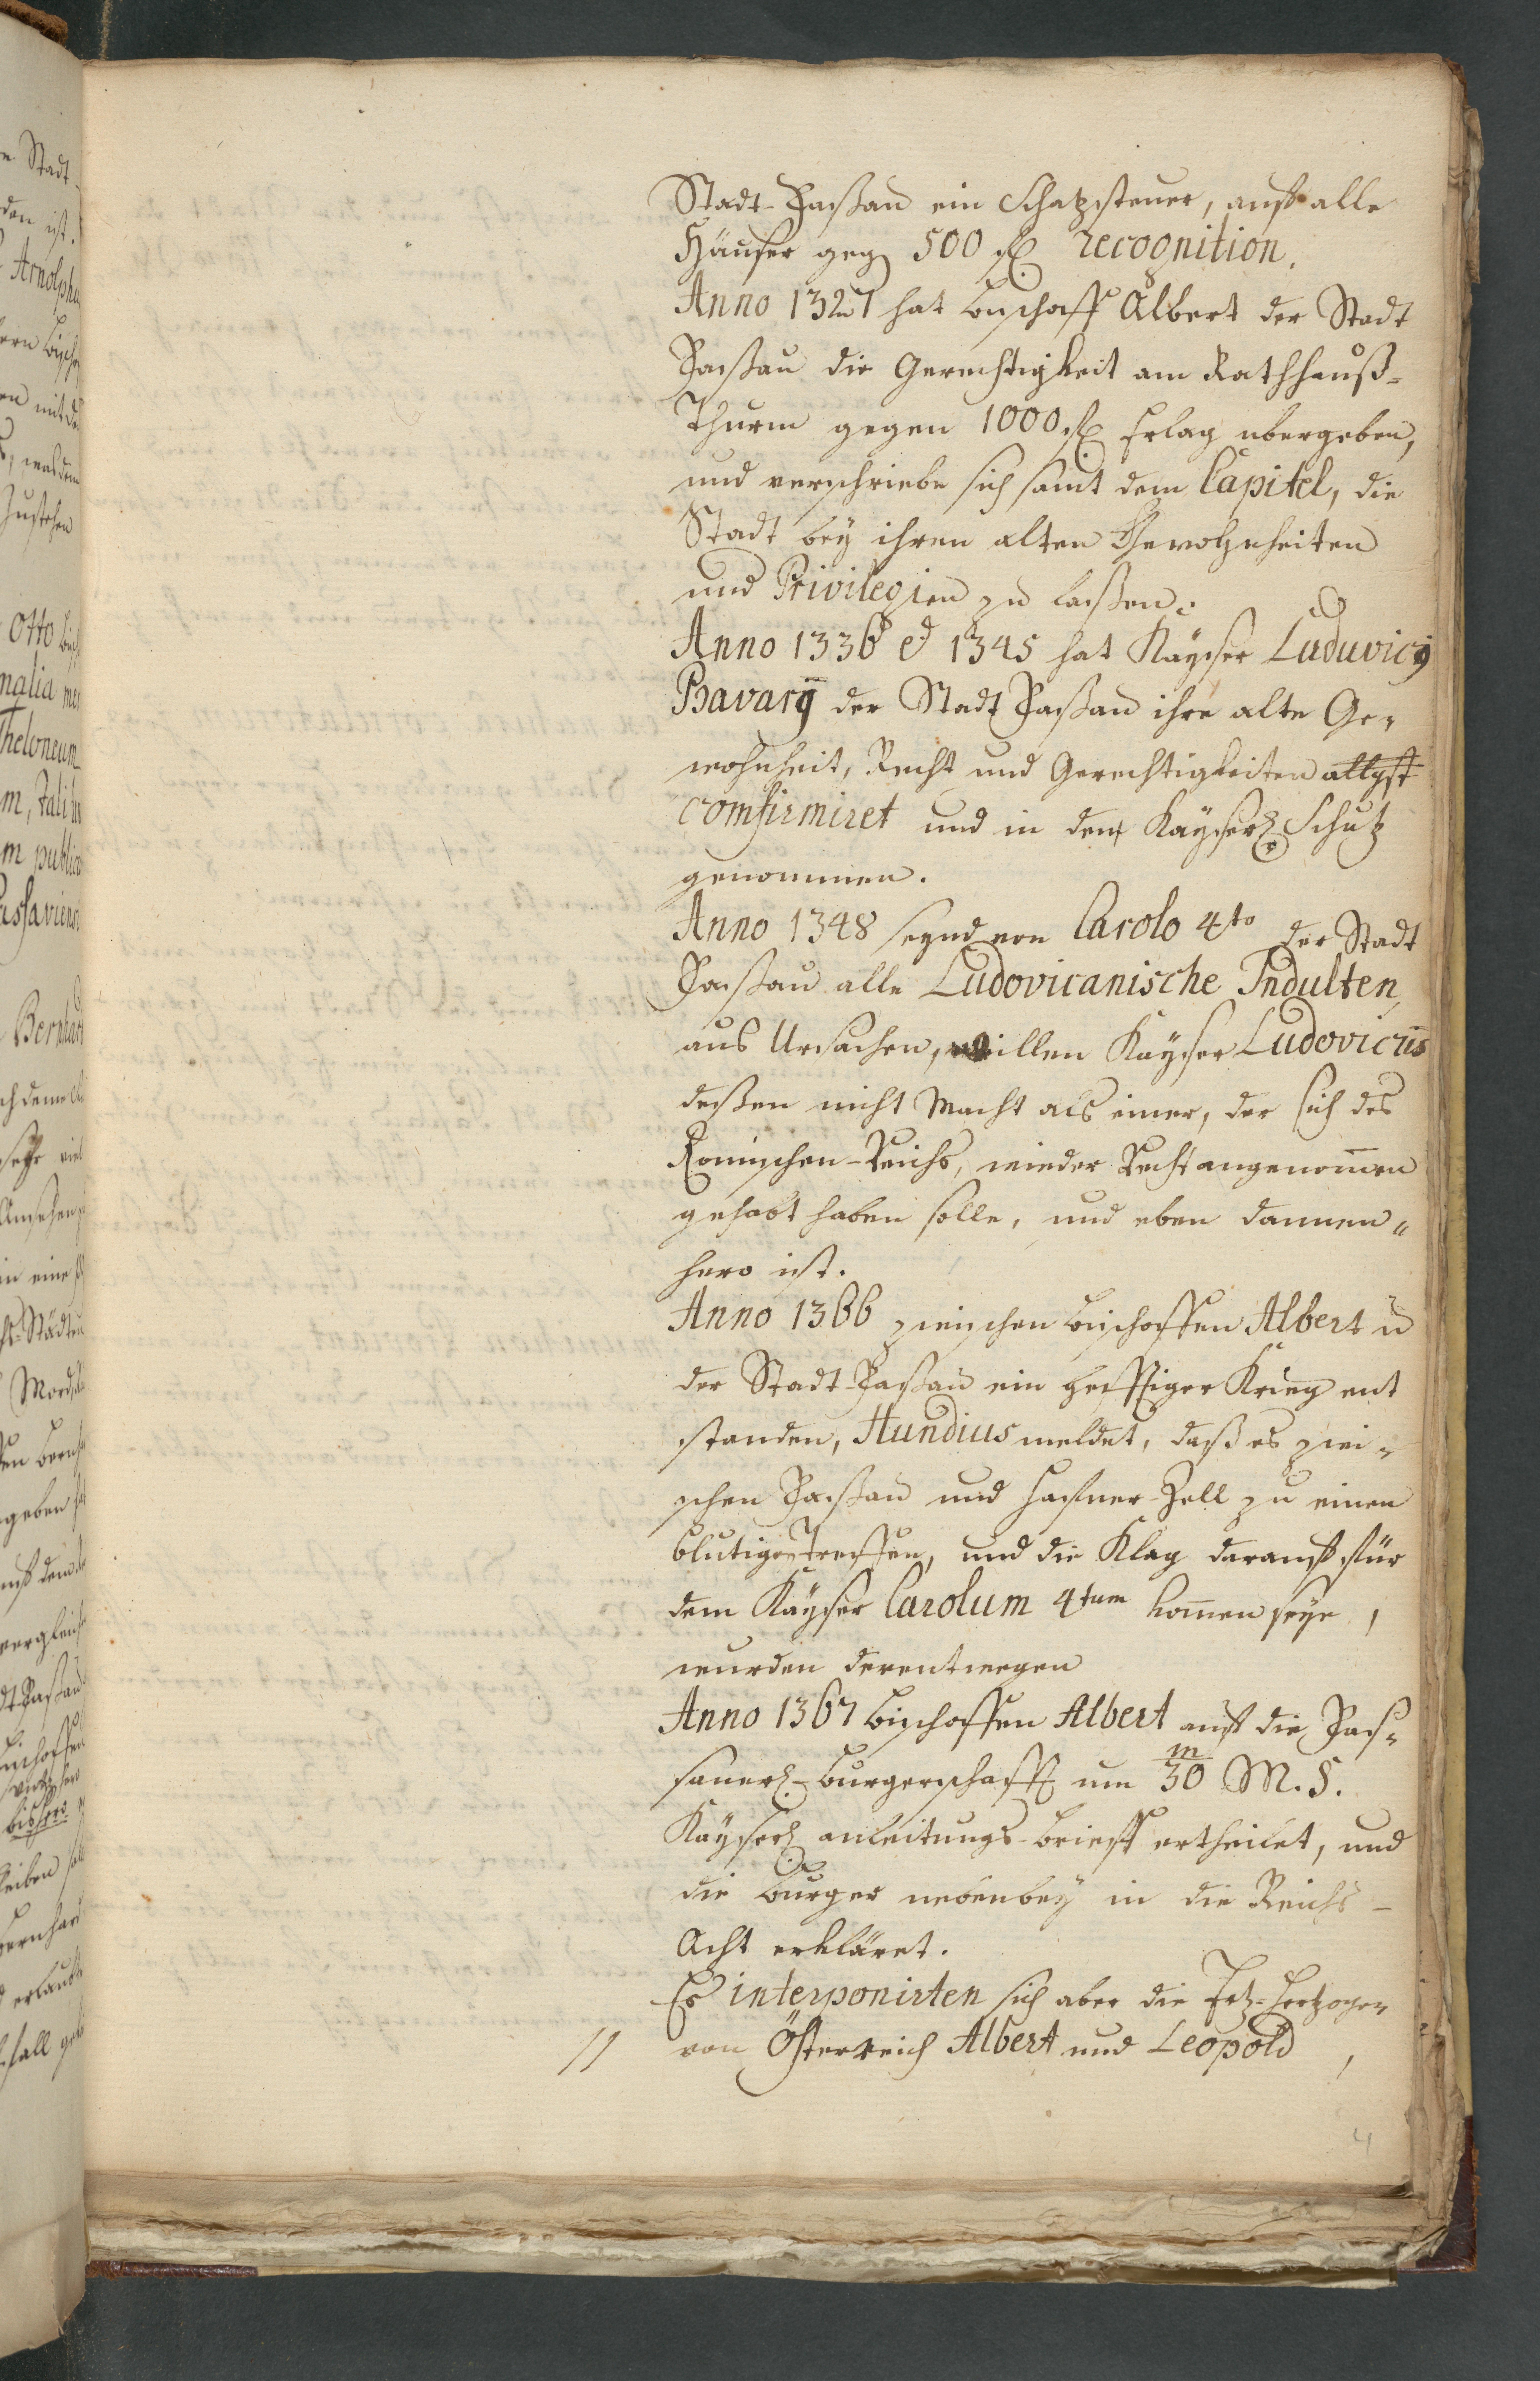 Stadt-Paßau ein Schatzsteuer, auf alle
Häuser geg 500 fl recognition.
Anno 1327 hat bischoff Albert der Stadt
Paßau die Gerechtigkeit am Rathhauß-
Thurm gegen 1000 fl Erlag ubergeben,
und verschriebe sich samt dem Capitel, die
Stadt bey ihren alten Gewohnheiten
und Privilegien zu laßen.
Anno 1336 et 1345 hat Kayser Luduvicy
Bavarÿ der Stadt Paßau ihre alte Ge-
wohnheit, Recht und Gerechtigkeiten
comfirmiret und in den Kayserl. Schutz
genommen.
Anno 1348 seynd von Carolo 4to der Stadt
Paßau alle Ludovicanische Indulten,
aus Ursachen, willen Kayser Ludovicus
deßen nicht Macht als einer, der sich des
Romischen-Reichs, wieder Recht angenom̄en
gehabt haben solle, und eben dannen-
hero ist.
Anno 1366 zwischen bischoffen Albert u
der Stadt-Paßau ein hefftiger Krieg ent
standen, Hundius meldet, daß es zwi-
schen Paßau und Hafner-Zell zu einen
blutigen treffen, und die Klag darauf für
dem Kayser Carolum 4tum kom̄en seye,
wurden derentwegen
Anno 1367 bischoffen Albert auf die Pas-
sauerl.-burgerschafft um 30 m M. S.
Kayserl anleitungs-brieff ertheilet, und
die burger nebenbey in die Reichs-
Acht erkläret.
Es interponirten sich aber die Ertz-Hertzogen
// von Österreich Albert und Leopold,
4